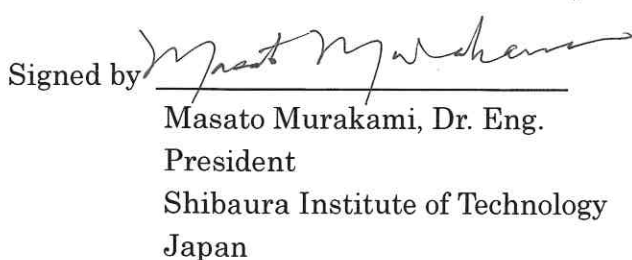 Signed by Masato Murakami
Masato Murakami, Dr. Eng.
President
Shibaura Institute of Technology
Japan